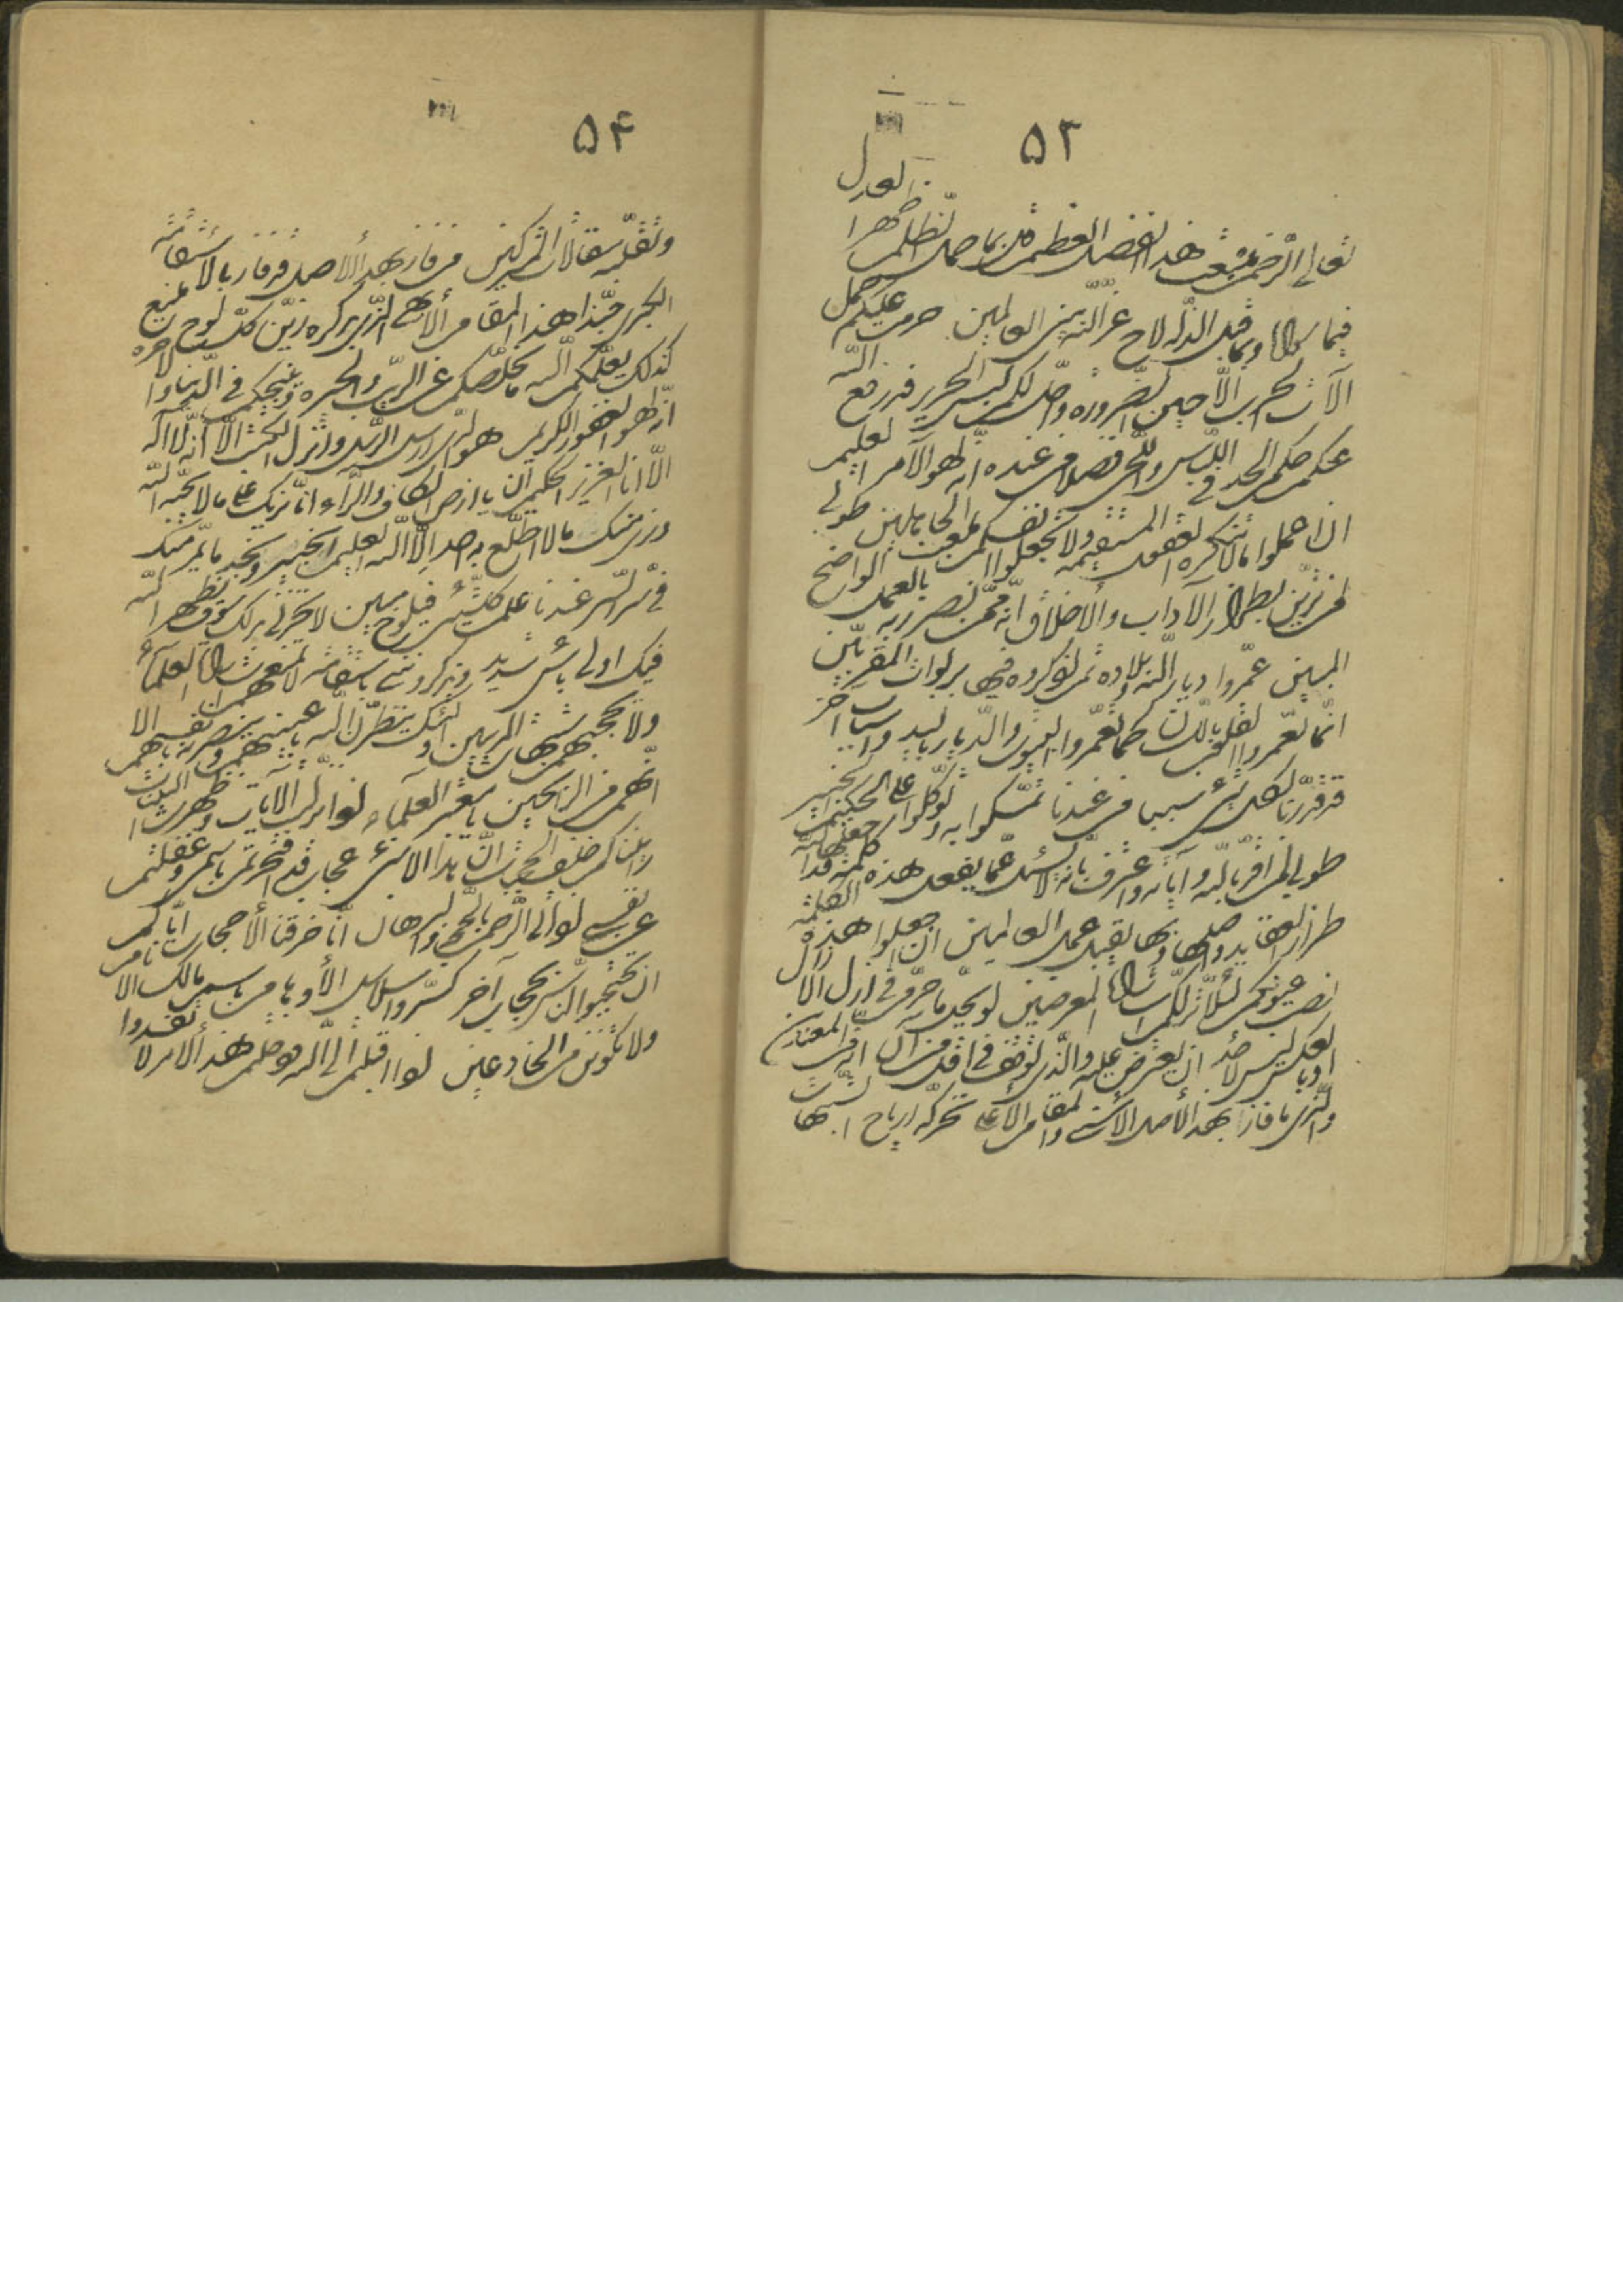 ٥٣
تعالى الرّحمن مشرق هذا الفضل العظيم قل بما حمل الظّلم ظهر العدل
فيما سواه وبما قبل الذّلّه لاح عزّ اللّه بين العالمين حرّمت عليكم حمل
آلات الحرب الّا حين الضّروره واحلّ لكم لبس الحرير قد رفع اللّه
عنكم حكم الحدّ في اللّباس واللّحى فضلا من عنده انّه لهو الآمر العليم
ان اعملوا ما لا تنكره العقول المستقيمه ولا تجعلوا انفسكم ملعب الجاهلين طوبى
لمن تزيّن بطراز الآداب والاخلاق انّه ممّن نصر ربّه بالعمل الواضح
المبين عمّروا ديار اللّه وبلاده ثمّ اذكروه فيها بربوات المقرّبين
انّما تعمّروا القلوب باللّسان كما تعمّروا البيوت والدّيار باليد واسباب اخر
قد قدّرنا لكلّ شئ سببا من عندنا تمسّكوا به وتوكّلوا على الحكيم الخبير
طوبى لمن اقرّ باللّه وآياته واعترف بانّه لا يسئل عمّا يفعل هذه كلمة قد جعلها اللّه
طراز العقايد واصلها وبها يقبل عمل العاملين ان اجعلوا هذه الكلمة
نصب عيونكم لئلّا تزلّكم اشارات المعرضين لو يحلّ ما حرّم في ازل الآزال
او بالعكس ليس لأحد ان يعترض عليه والّذي توقّف في اقلّ من آن انّه من المعتدين
والّذي ما فاز بهذا الأصل الأسنى والمقام الأعلى تحرّكه ارياح الشّبهات
٥۴
وتقلّبه مقالات المشركين من فاز بهذا الأصل قد فاز بالاستقامة
الكبرى حبّذا هذا المقام الأبهى الّذي بذكره زيّن كلّ لوح منيع
كذلك يعلّمكم اللّه ما يخلّصكم عن الرّيب والحيره وينجيكم في الدّنيا والآخره
انّه هو الغفور الكريم هو الّذي ارسل الرّسل وانزل الكتب الا انّه لا اله
الّا انا العزيز الحكيم ان يا ارض الكاف والرّاء انّا نريك على ما لا يحبّه اللّه
ونرى منك ما لا اطّلع به احد الّا اللّه العليم الخبير ونجد ما يمرّ منك
في سرّ السّرّ عندنا علم كلّ شئ في لوح مبين لا تحزني بذلك سوف يظهر اللّه
فيك اولى بأس شديد يذكرونني باستقامة لا تمنعهم اشارات العلمآء
ولا تحجبهم شبهات المريبين اولئك ينظرنّ اللّه باعينهم وينصرنه بانفسهم الا
انّهم من الرّاسخين يا معشر العلمآء لمّا نزّلت الآيات وظهرت البيّنات
رايناكم خلف الحجبات انّ هذا الا شئ عجاب قد افتخرتم باسمي وغفلتم
عن نفسي اذ اتى الرّحمن بالحجّة والبرهان انّا خرقنا الأحجاب ايّاكم
ان تحجبوا النّاس بحجاب آخر كسّروا سلاسل الأوهام باسم مالك الانام
ولا تكوننّ من الخادعين اذا اقبلتم الى اللّه ودخلتم هذا الأمر لا تفسدوا